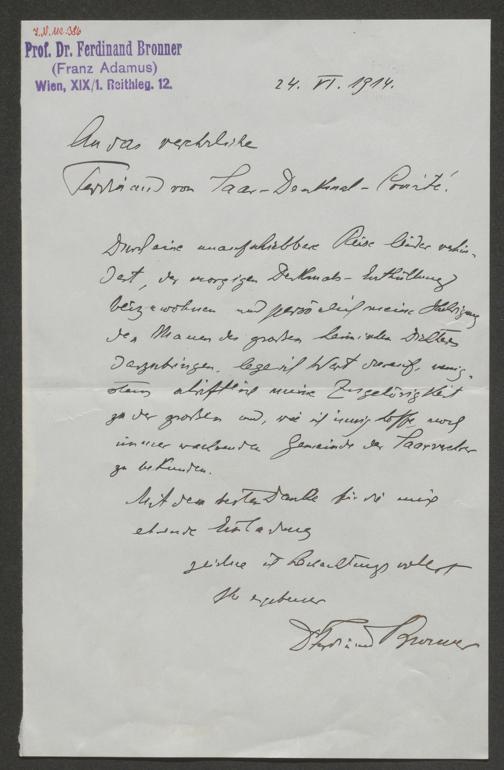 I.N. 112.386
Prof. Dr. Ferdinand Bronner
(Franz Adamus)
Wien, XIX/1. Reithleg. 12.
24. VI. 1914.
An das verehrliche
Ferdinand von Saar-Denkmal-Comité!
Durch eine unaufschiebbare Reise leider verhin-
dert, der morgigen Denkmals-Enthüllung
beizuwohnen und persönlich meine Huldigung
den Manen des großen heimischen Dichters
darzubringen, lege ich Wert darauf, wenig-
stens schriftlich meine Zugehörigkeit
zu der großen und, wie ich innig hoffe noch
immer wachsenden Gemeinde der Saarverehrer
zu bekunden.
Mit dem besten Danke für die mich
ehrende Einladung
zeichne ich hochachtungsvollst
Ihr ergebener
Dr Ferdinand Bronner